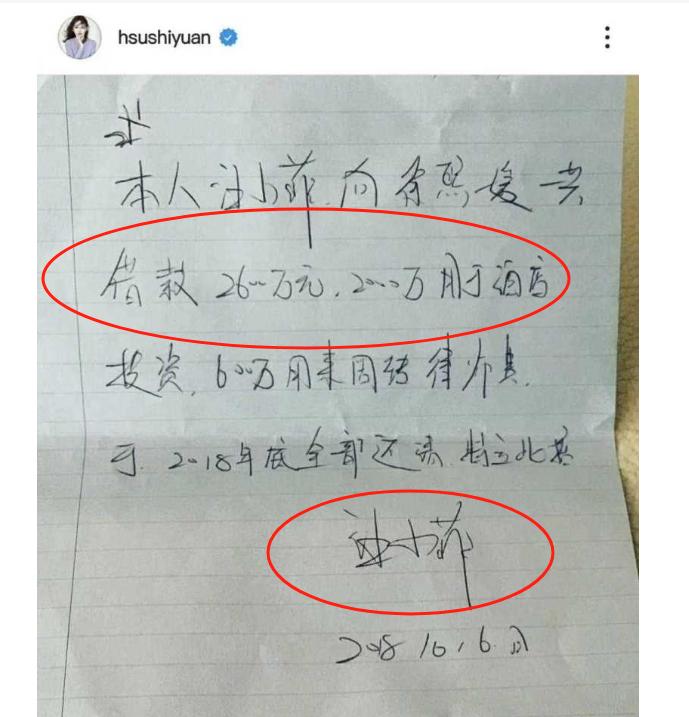 hsushiyuan
本人汪小菲.向徐熙媛共
借款2600万元.2000万用于酒店
投资.600万用来周转律师费.
于.2018年底全部还清.特立此据
汪小菲
2018.10.6.